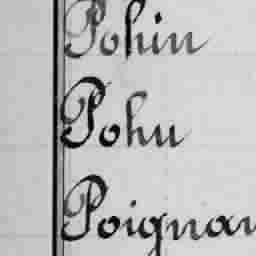 Pohin
Pohu
Poignan